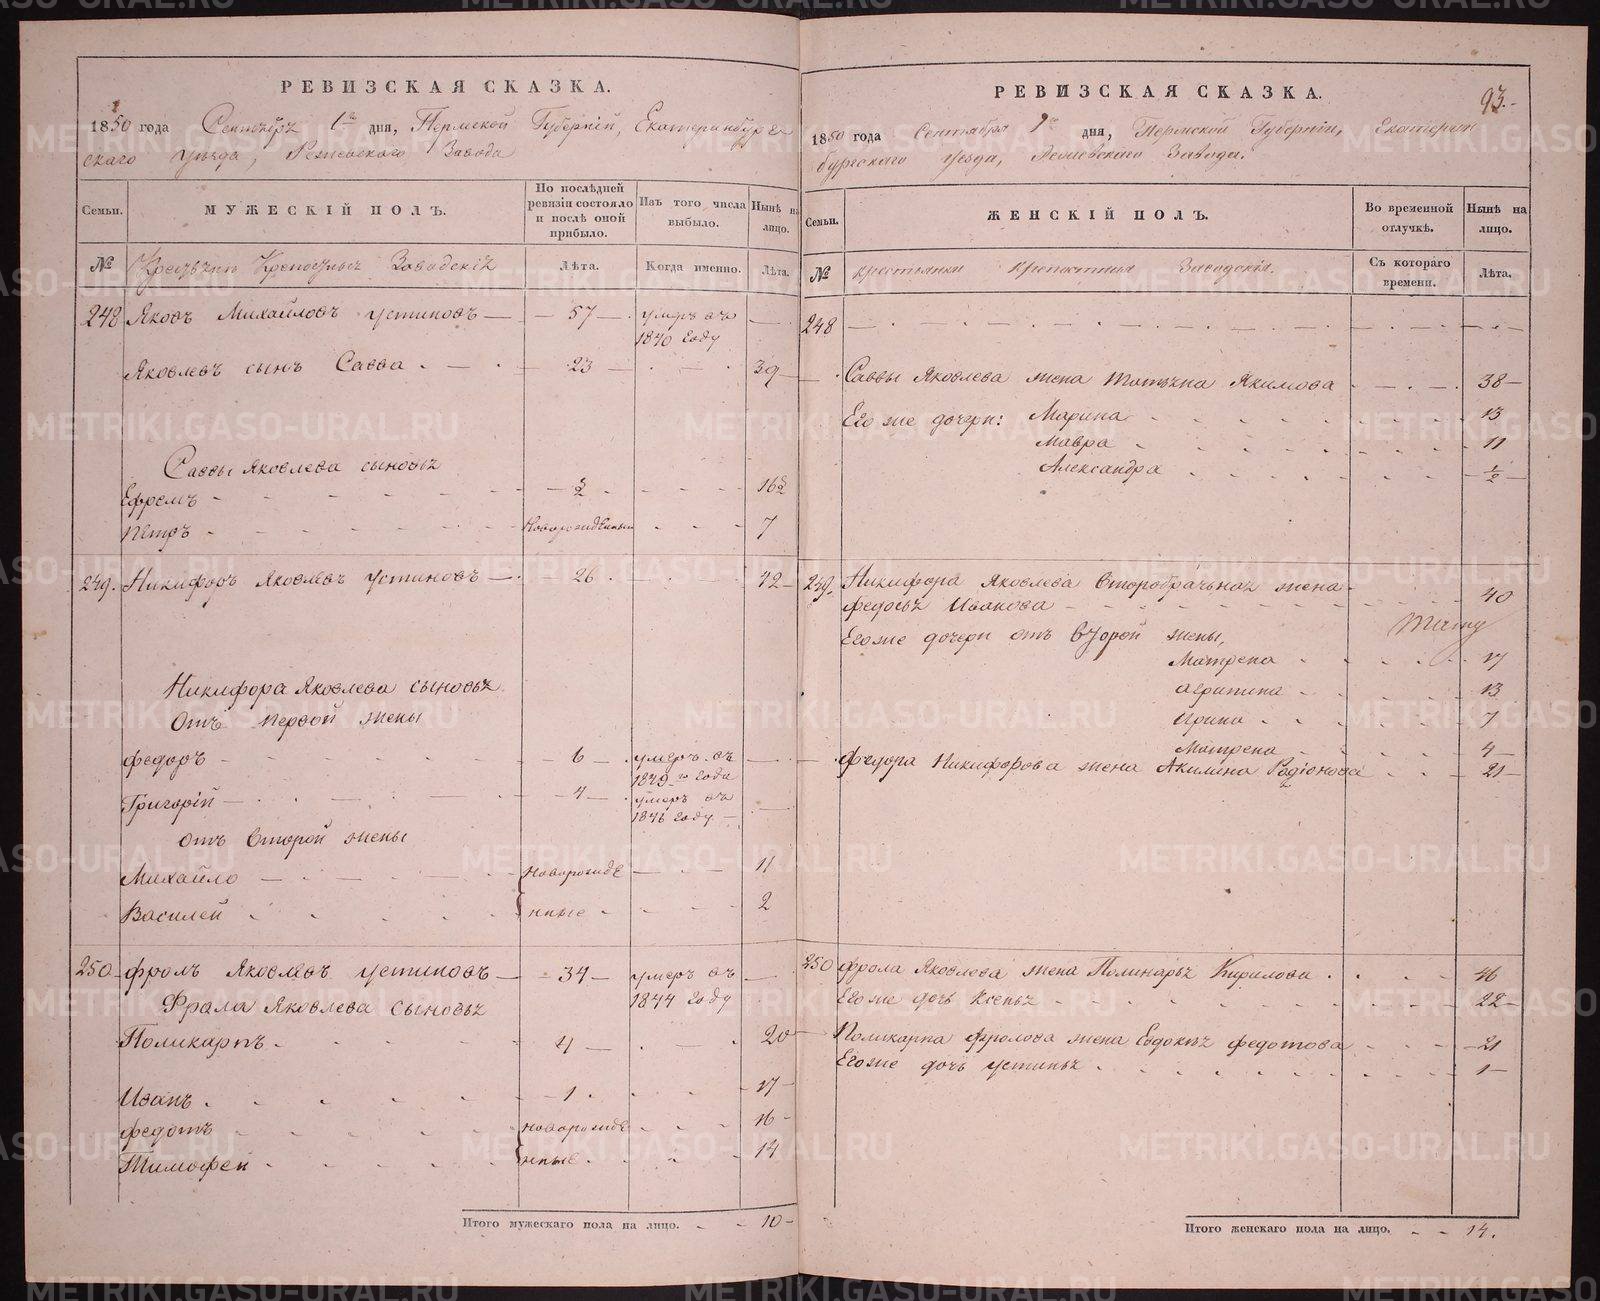 РЕВИЗСКАЯ СКАЗКА.
1850 года Сентября 1го дня, Пермской Губернiи, Екатеринбург
скаго уезда, Режевскаго Завода
Семьи.
МУЖЕСКIЙ ПОЛЪ.
По послѣдней ревизiи состояло и послѣ оной прибыло.
Изъ того числа выбыло.
Нынѣ на лицо.
№
Крестьяне Крепостные Заводскiе
Лѣта.
Когда именно.
Лѣта.
248 Яковъ Михайловъ Устиновъ — 57 — умеръ въ
1840 году
Яковлевъ сынъ Савва — 23 — 39
Саввы Яковлева сыновья
Ефремъ
Петръ новорожденный 7
249. Никифоръ Яковлевъ Устиновъ — 26 42
Никифора Яковлева сыновья
Отъ первой жены
Федоръ 6 умеръ въ
1849го году
Григорiй 4 умеръ въ
1846 году
Отъ второй жены
Михайло новорожде 11
Василей нные 2
250 Фролъ Яковлевъ Устиновъ — 34 — умеръ въ
1844 году
Фрала Яковлева сыновья
Поликарпъ 4 20
Иванъ 1 17
Федотъ новорожде 16
Тимофей нные 14
Итого мужескаго пола на лицо. 10
РЕВИЗСКАЯ СКАЗКА.
93.
1850 года Сентября 1го дня, Пермской Губернiи, Екатерин
бургскаго уезда, Режевскаго Завода.
Семьи.
ЖЕНСКIЙ ПОЛЪ.
Во временной отлучкѣ.
Нынѣ на лицо.
№
Крестьянки Крепостныя Заводскiя.
Съ котораго времени.
Лѣта.
248
Саввы Яковлева жена Татьяна Якимова 38
Его же дочери: Марина 13
Мавра 11
Александра 1/2
249. Никифора Яковлева второбрачная жена
Федосья Иванова 40
Его же дочери отъ второй жены,
Матрена 17
Агрипина 13
Ирина 7
Матрена 4
Федора Никифорова жена Акилина Радiонова 21
250 Фрола Яковлева жена Полинарья Кирилова 46
Его же дочь Ксенья 22
Поликарпа Фролова жена Евдокья Федотова 21
Его же дочь Устинья 1
Итого женскаго пола на лицо. 14.
METRIKI.GASO-URAL.RU